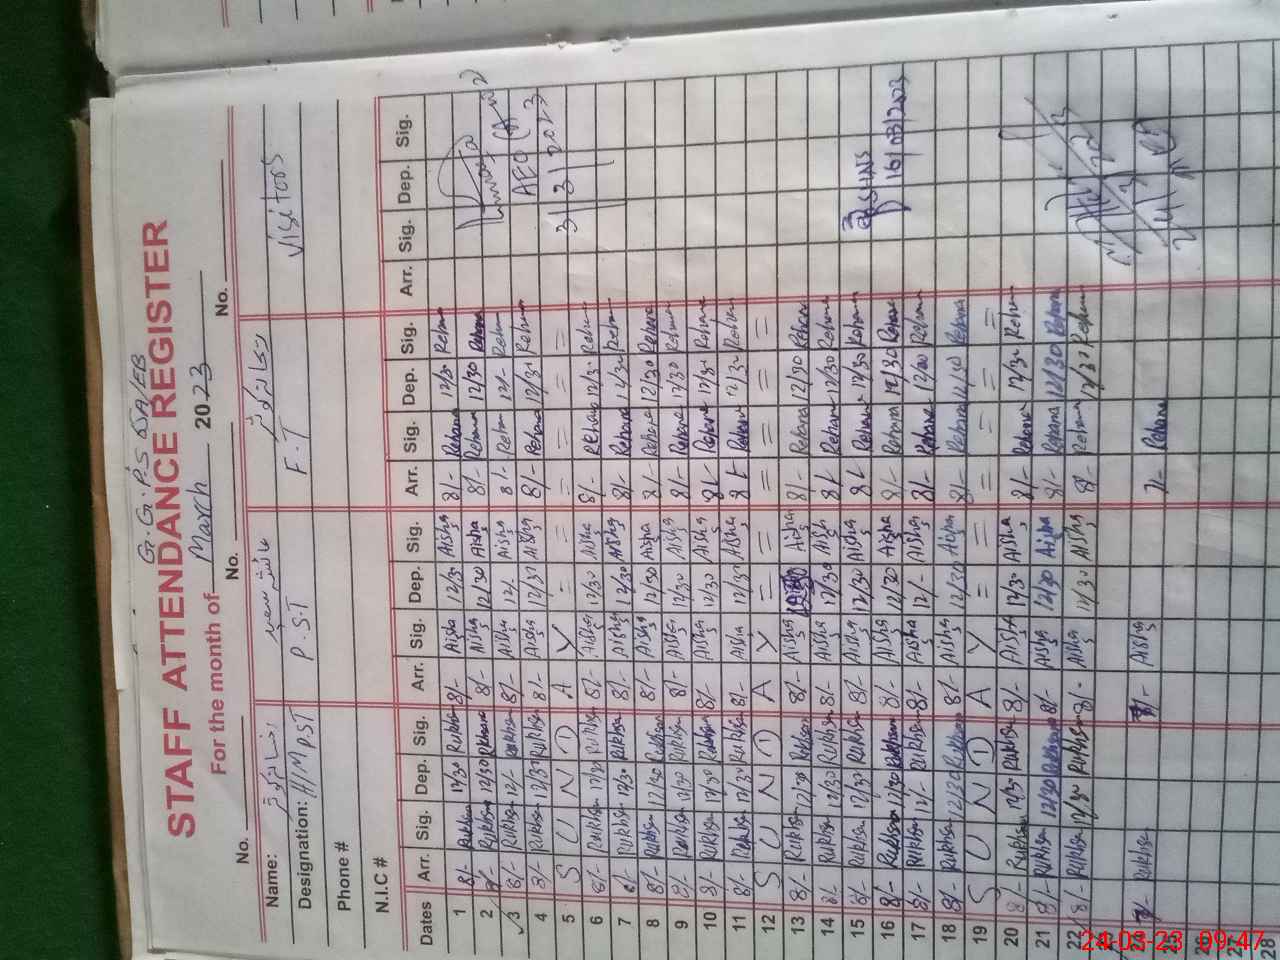 G.G.P.S 5A/EB
STAFF ATTENDANCE REGISTER
For the month of March 2023
No. No. No.
Name: Visitors
Designation: H/M PST P.S.T F.T
Phone #
N.I.C #
Dates Arr. Sig. Dep. Sig. Arr. Sig. Dep. Sig. Arr. Sig. Dep. Sig. Arr. Sig. Dep. Sig.
1 8/- Rukhsa 12/30 Rukhsa 8/- Aisha 12/30 Aisha 8/- Rehana 12/30 Rehana
2 8/- Rukhsa 12/30 Rukhsana 8/- Aisha 12/30 Aisha 8/- Rehana 12/30 Rehana
3 8/- Rukhsa 12/- Rukhsa 8/- Aisha 12/- Aisha 8/- Rehana 12/- Rehana AEO
4 8/- Rukhsa 12/30 Rukhsa 8/- Aisha 12/30 Aisha 8/- Rehana 12/30 Rehana
5 S U N D A Y = = = = = = 3/3/2023
6 8/- Rukhsa 12/30 Rukhsa 8/- Aisha 12/30 Aisha 8/- Rehana 12/30 Rehana
7 8/- Rukhsa 12/30 Rukhsa 8/- Aisha 12/30 Aisha 8/- Rehana 12/30 Rehana
8 8/- Rukhsa 12/30 Rukhsana 8/- Aisha 12/30 Aisha 8/- Rehana 12/30 Rehana
9 8/- Rukhsa 12/30 Rukhsa 8/- Aisha 12/30 Aisha 8/- Rehana 12/30 Rehana
10 8/- Rukhsa 12/30 Rukhsa 8/- Aisha 12/30 Aisha 8/- Rehana 12/30 Rehana
11 8/- Rukhsa 12/30 Rukhsa 8/- Aisha 12/30 Aisha 8/- Rehana 12/30 Rehana
12 S U N D A Y = = = = = =
13 8/- Rukhsa 12/30 Rukhsan 8/- Aisha 12/30 Aisha 8/- Rehana 12/30 Rehana
14 8/- Rukhsa 12/30 Rukhsa 8/- Aisha 12/30 Aisha 8/- Rehana 12/30 Rehana
15 8/- Rukhsa 12/30 Rukhsa 8/- Aisha 12/30 Aisha 8/- Rehana 12/30 Rehana
16 8/- Rukhsan 12/30 Rukhsan 8/- Aisha 12/30 Aisha 8/- Rehana 12/30 Rehana 16/03/2023
17 8/- Rukhsa 12/- Rukhsa 8/- Aisha 12/- Aisha 8/- Rehana 12/00 Rehana
18 8/- Rukhsa 12/30 Rukhsan 8/- Aisha 12/30 Aisha 8/- Rehana 12/30 Rehana
19 S U N D A Y = = = = = =
20 8/- Rukhsa 12/30 Rukhsa 8/- Aisha 12/30 Aisha 8/- Rehana 12/30 Rehana
21 8/- Rukhsa 12/30 Rukhsan 8/- Aisha 12/30 Aisha 8/- Rehana 12/30 Rehana
22 8/- Rukhsa 12/30 Rukhsan 8/- Aisha 12/30 Aisha 8/- Rehana 12/30 Rehana
24 Rukhsa Aisha Rehana
25
26
27
28
24-03-23 09:47